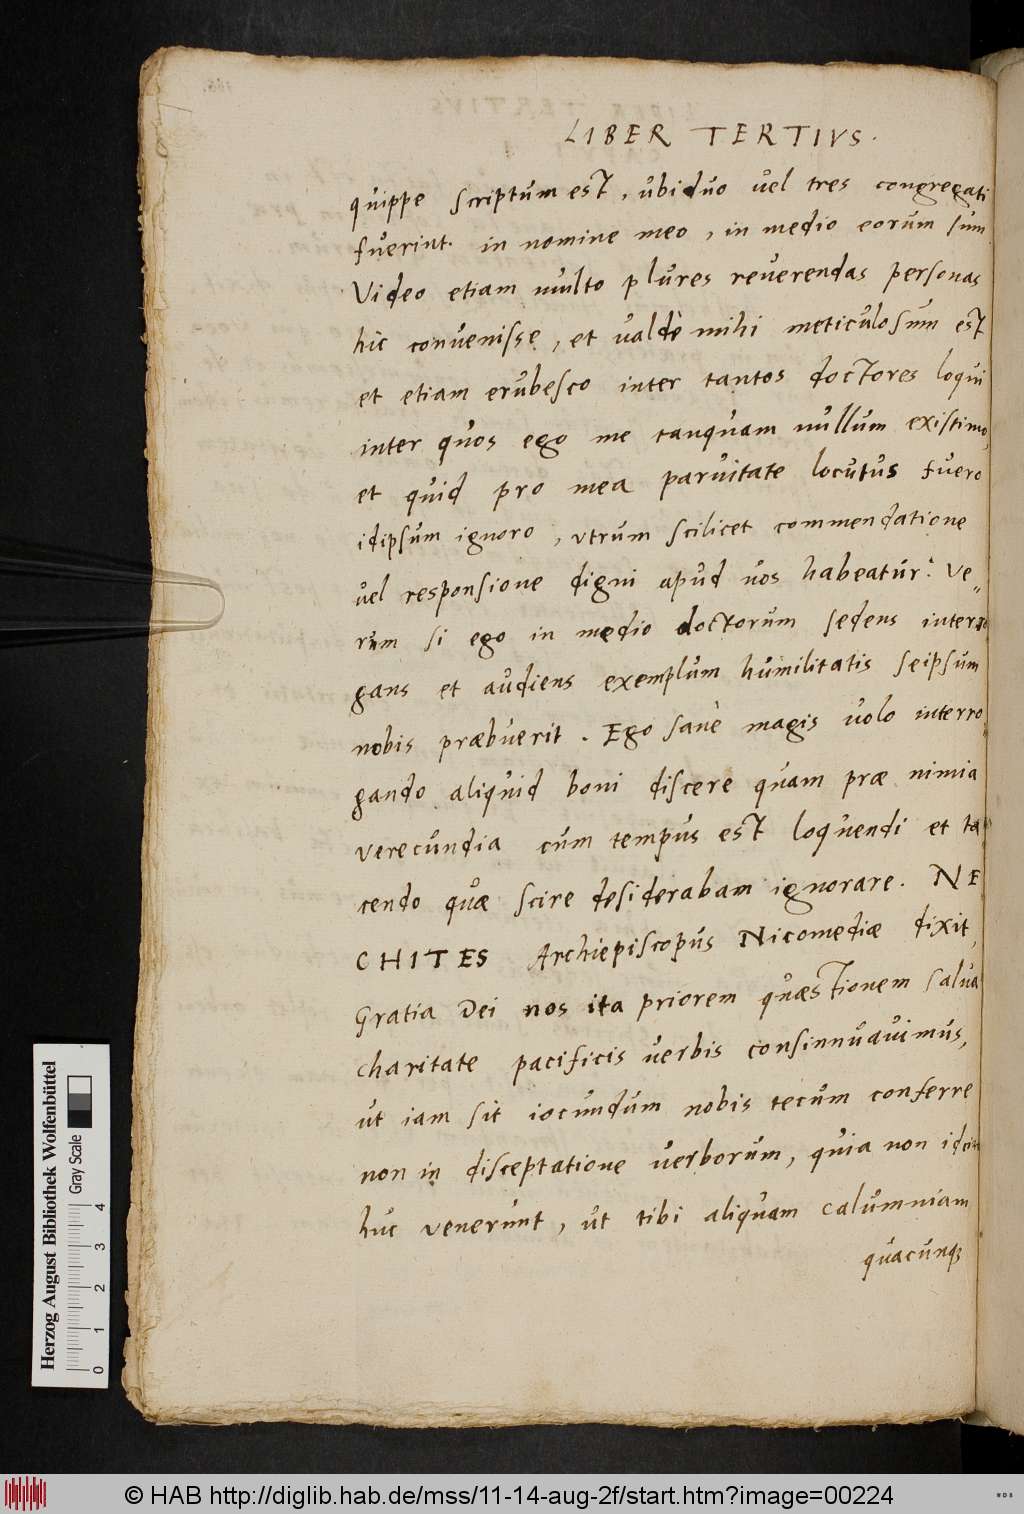 LIBER TERTIVS.
quippe scriptum est, vbi duo vel tres congregati
fuerint. in nomine meo, in medio eorum sum
Video etiam multo plures reuerendas personas
hic convenisse, et valdè mihi meticulosum est
et etiam erubesco inter tantos doctores loqui
inter quos ego me tanquam nullum existimo,
et quid pro mea paruitate locutus fuero
idipsum ignoro, vtrum scilicet commendatione
vel responsione digni apud vos habeatur: Ve=
rum si ego in medio doctorum sedens interro
gans et audiens exemplum humilitatis seipsum
nobis præbuerit. Ego sanè magis volo interro
gando aliquid boni discere quam præ nimia
verecundia cum tempus est loquendi et ta
cendo quæ scire desiderabam ignorare. NE
CHITES Archiepiscopus Nicomediæ dixit,
Gratia Dei nos ita priorem quæstionem salua
charitate pacificis verbis consinnuauimus,
ut iam sit iocundum nobis tecum conferre
non in disceptatione verborum, quia non ideo
huc venerunt, ut tibi aliquam calumniam
quacunq;
Herzog August Bibliothek Wolfenbüttel
Gray Scale
0 1 2 3 4
© HAB http://diglib.hab.de/mss/11-14-aug-2f/start.htm?image=00224